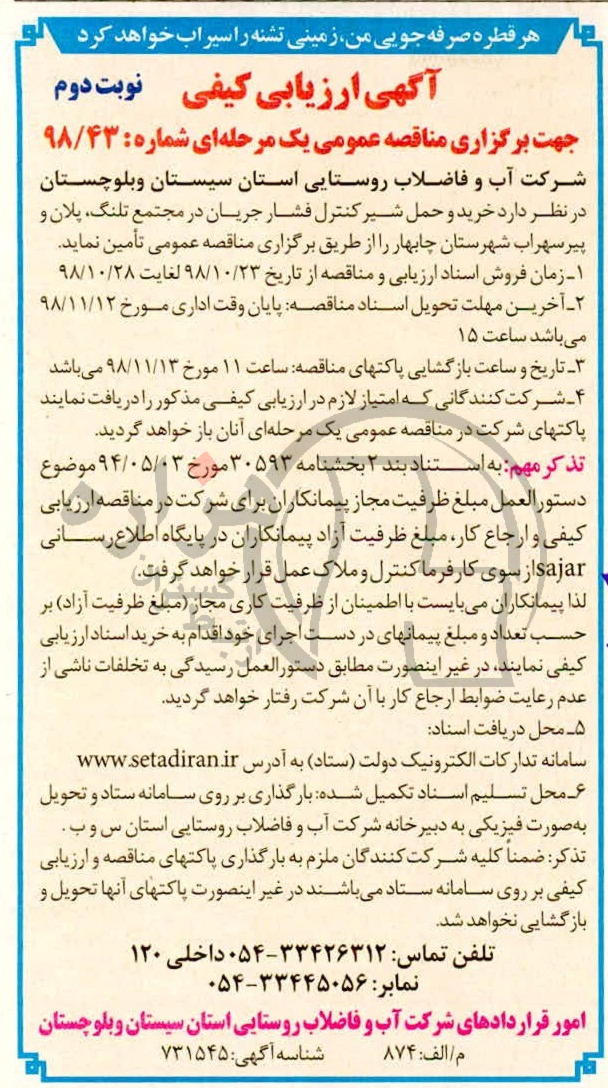 هر قطره صرفه جویی من، زمینی تشنه را سیراب خواهد کرد
آگهی ارزیابی کیفی
نوبت دوم
جهت برگزاری مناقصه عمومی یک مرحله‌ای شماره: ۹۸/۴۳
شرکت آب و فاضلاب روستایی استان سیستان وبلوچستان
در نظر دارد خرید و حمل شیر کنترل فشار جریان در مجتمع تلنگ، پلان و
پیرسهراب شهرستان چابهار را از طریق برگزاری مناقصه عمومی تأمین نماید.
۱ـ زمان فروش اسناد ارزیابی و مناقصه از تاریخ ۹۸/۱۰/۲۳ لغایت ۹۸/۱۰/۲۸
۲ـ آخرین مهلت تحویل اسناد مناقصه: پایان وقت اداری مورخ ۹۸/۱۱/۱۲
می‌باشد ساعت ۱۵
۳ـ تاریخ و ساعت بازگشایی پاکتهای مناقصه: ساعت ۱۱ مورخ ۹۸/۱۱/۱۳ می‌باشد
۴ـ شرکت کنندگانی که امتیاز لازم در ارزیابی کیفی مذکور را دریافت نمایند
پاکتهای شرکت در مناقصه عمومی یک مرحله‌ای آنان باز خواهد گردید.
تذکر مهم: به استناد بند ۲ بخشنامه ۳۰۵۹۳ مورخ ۹۴/۰۵/۰۳ موضوع
دستورالعمل مبلغ ظرفیت مجاز پیمانکاران برای شرکت در مناقصه ارزیابی
کیفی و ارجاع کار، مبلغ ظرفیت آزاد پیمانکاران در پایگاه اطلاع‌رسانی
sajar از سوی کارفرما کنترل و ملاک عمل قرار خواهد گرفت.
لذا پیمانکاران می‌بایست با اطمینان از ظرفیت کاری مجاز (مبلغ ظرفیت آزاد) بر
حسب تعداد و مبلغ پیمانهای در دست اجرای خود اقدام به خرید اسناد ارزیابی
کیفی نمایند، در غیر اینصورت مطابق دستورالعمل رسیدگی به تخلفات ناشی از
عدم رعایت ضوابط ارجاع کار با آن شرکت رفتار خواهد گردید.
۵ـ محل دریافت اسناد:
سامانه تدارکات الکترونیک دولت (ستاد) به آدرس www.setadiran.ir
۶ـ محل تسلیم اسناد تکمیل شده: بارگذاری بر روی سامانه ستاد و تحویل
به‌صورت فیزیکی به دبیرخانه شرکت آب و فاضلاب روستایی استان س و ب .
تذکر: ضمناً کلیه شرکت کنندگان ملزم به بارگذاری پاکتهای مناقصه و ارزیابی
کیفی بر روی سامانه ستاد می‌باشند در غیر اینصورت پاکتهای آنها تحویل و
بازگشایی نخواهد شد.
تلفن تماس: ۳۳۴۲۶۳۱۲-۰۵۴ داخلی ۱۲۰
نمابر: ۳۳۴۴۵۰۵۶-۰۵۴
امور قراردادهای شرکت آب و فاضلاب روستایی استان سیستان وبلوچستان
م/الف: ۸۷۴ شناسه آگهی: ۷۳۱۵۴۵